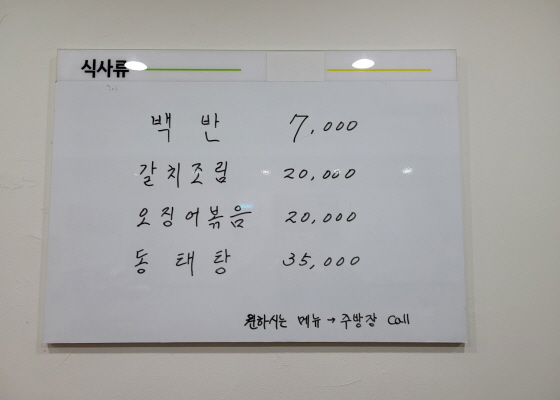 식사류
백 반 7,000
갈치조림 20,000
오징어볶음 20,000
동 태 탕 35,000
원하시는 메뉴 → 주방장 Call